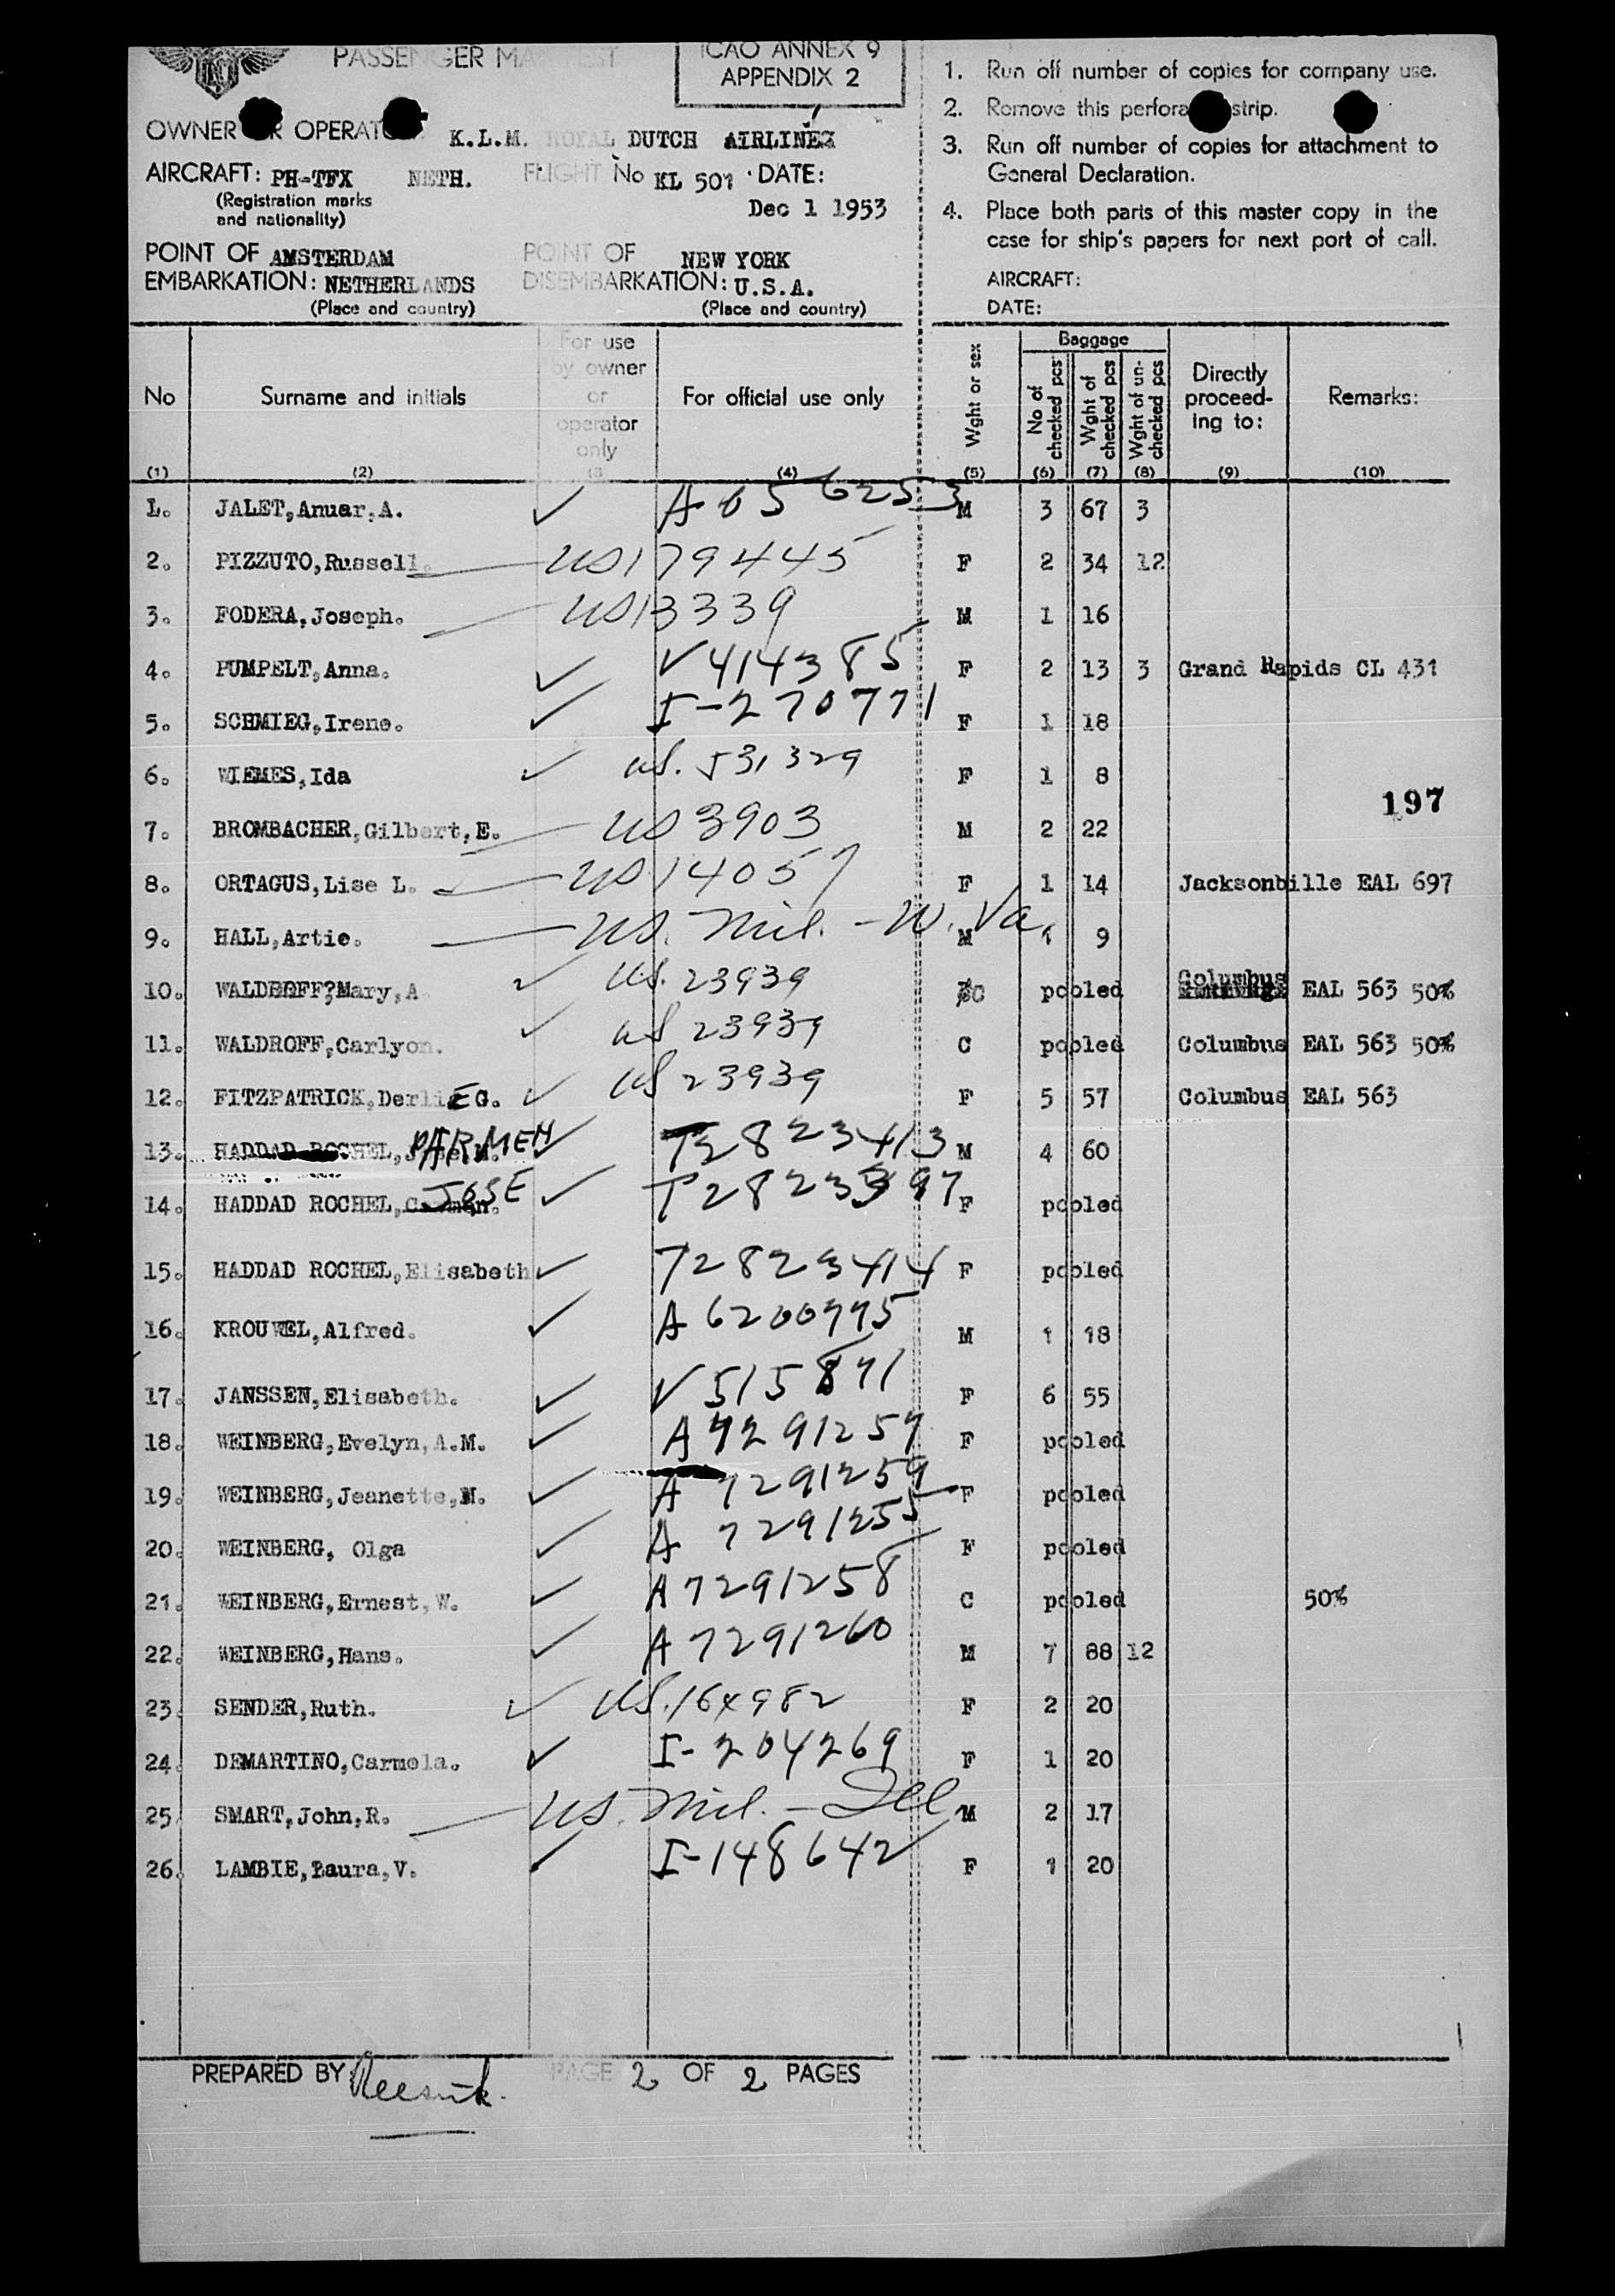 PASSENGER MANIFEST
ICAO ANNEX 9
APPENDIX 2
OWNER OR OPERATOR K.L.M. ROYAL DUTCH AIRLINES
AIRCRAFT: PH-TFX NETH. FLIGHT No KL 501 DATE:
(Registration marks
and nationality)
Dec 1 1953
POINT OF AMSTERDAM POINT OF NEW YORK
EMBARKATION: NETHERLANDS DISEMBARKATION: U.S.A.
(Place and country) (Place and country)
1. Run off number of copies for company use.
2. Remove this perfora strip.
3. Run off number of copies for attachment to
General Declaration.
4. Place both parts of this master copy in the
case for ship's papers for next port of call.
AIRCRAFT:
DATE:
No Surname and initials For use by owner or operator only For official use only Wght or sex Baggage No of checked pcs Wght of checked pcs Wght of un-checked pcs Directly proceed-ing to: Remarks:
(1) (2) (3 (4) (5) (6) (7) (8) (9) (10)
1. JALET,Anuar,A. ✓ A 656253 M 3 67 3
2. PIZZUTO,Russell. US179445 F 2 34 12
3. FODERA,Joseph. US13339 M 1 16
4. PUMPELT,Anna. ✓ V414385 F 2 13 3 Grand Rapids CL 431
5. SCHMIEG,Irene. ✓ I-270771 F 1 18
6. WIEMES,Ida ✓ US. 531329 F 1 8
197
7. BROMBACHER,Gilbert,E. US 3903 M 2 22
8. ORTAGUS,Lise L. US 14057 F 1 14 Jacksonbille EAL 697
9. HALL,Artie. US. Mil. - W. Va. M 1 9
10. WALDROFF?Mary,A ✓ US. 23939 C pooled Columbus EAL 563 50%
11. WALDROFF,Carlyon. ✓ US 23939 C pooled Columbus EAL 563 50%
12. FITZPATRICK,DerliE G. ✓ US 23939 F 5 57 Columbus EAL 563
13. HADDAD ROCHEL, PARMEN ✓ T2823413 M 4 60
14. HADDAD ROCHEL, JOSE ✓ T2823397 F pooled
15. HADDAD ROCHEL,Elisabeth ✓ T2823414 F pooled
16. KROUWEL,Alfred. ✓ A 6200995 M 1 18
17. JANSSEN,Elisabeth. ✓ V 515871 F 6 55
18. WEINBERG,Evelyn,A.M. ✓ A7291257 F pooled
19. WEINBERG,Jeanette,M. ✓ A 7291259 F pooled
20. WEINBERG, Olga ✓ A 7291255 F pooled
21. WEINBERG,Ernest,W. ✓ A7291258 C pooled 50%
22. WEINBERG,Hans. ✓ A7291260 M 7 88 12
23. SENDER,Ruth. ✓ US.164982 F 2 20
24. DEMARTINO,Carmela. ✓ I-204269 F 1 20
25. SMART,John,R. US. Mil. - Ill M 2 17
26. LAMBIE,Laura,V. ✓ I-148642 F 1 20
PREPARED BY PAGE 2 OF 2 PAGES